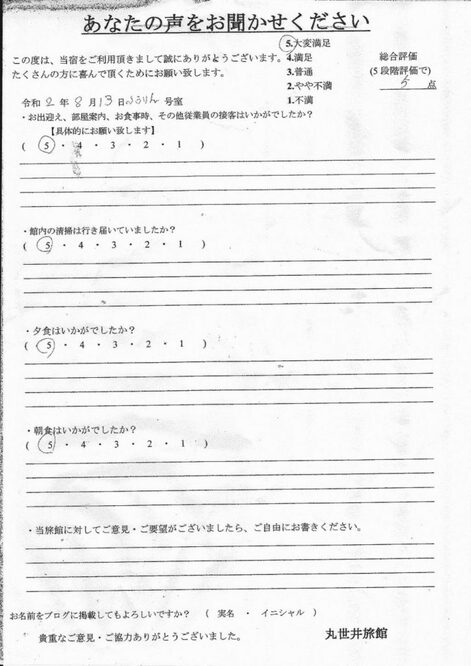 あなたの声をお聞かせください
この度は、当宿をご利用頂きまして誠にありがとうございます。
たくさんの方に喜んで頂くためにお願い致します。
5.大変満足
4.満足
3.普通
2.やや不満
1.不満
総合評価
(5段階評価で)
5 点
令和 2 年 8 月 13 日 ふうりん 号室
・お出迎え、部屋案内、お食事時、その他従業員の接客はいかがでしたか?
【具体的にお願い致します】
( 5 ・ 4 ・ 3 ・ 2 ・ 1 )
・館内の清掃は行き届いていましたか?
( 5 ・ 4 ・ 3 ・ 2 ・ 1 )
・夕食はいかがでしたか?
( 5 ・ 4 ・ 3 ・ 2 ・ 1 )
・朝食はいかがでしたか?
( 5 ・ 4 ・ 3 ・ 2 ・ 1 )
・当旅館に対してご意見・ご要望がございましたら、ご自由にお書きください。
お名前をブログに掲載してもよろしいですか? ( 実名 ・ イニシャル )
貴重なご意見・ご協力ありがとうございました。
丸世井旅館